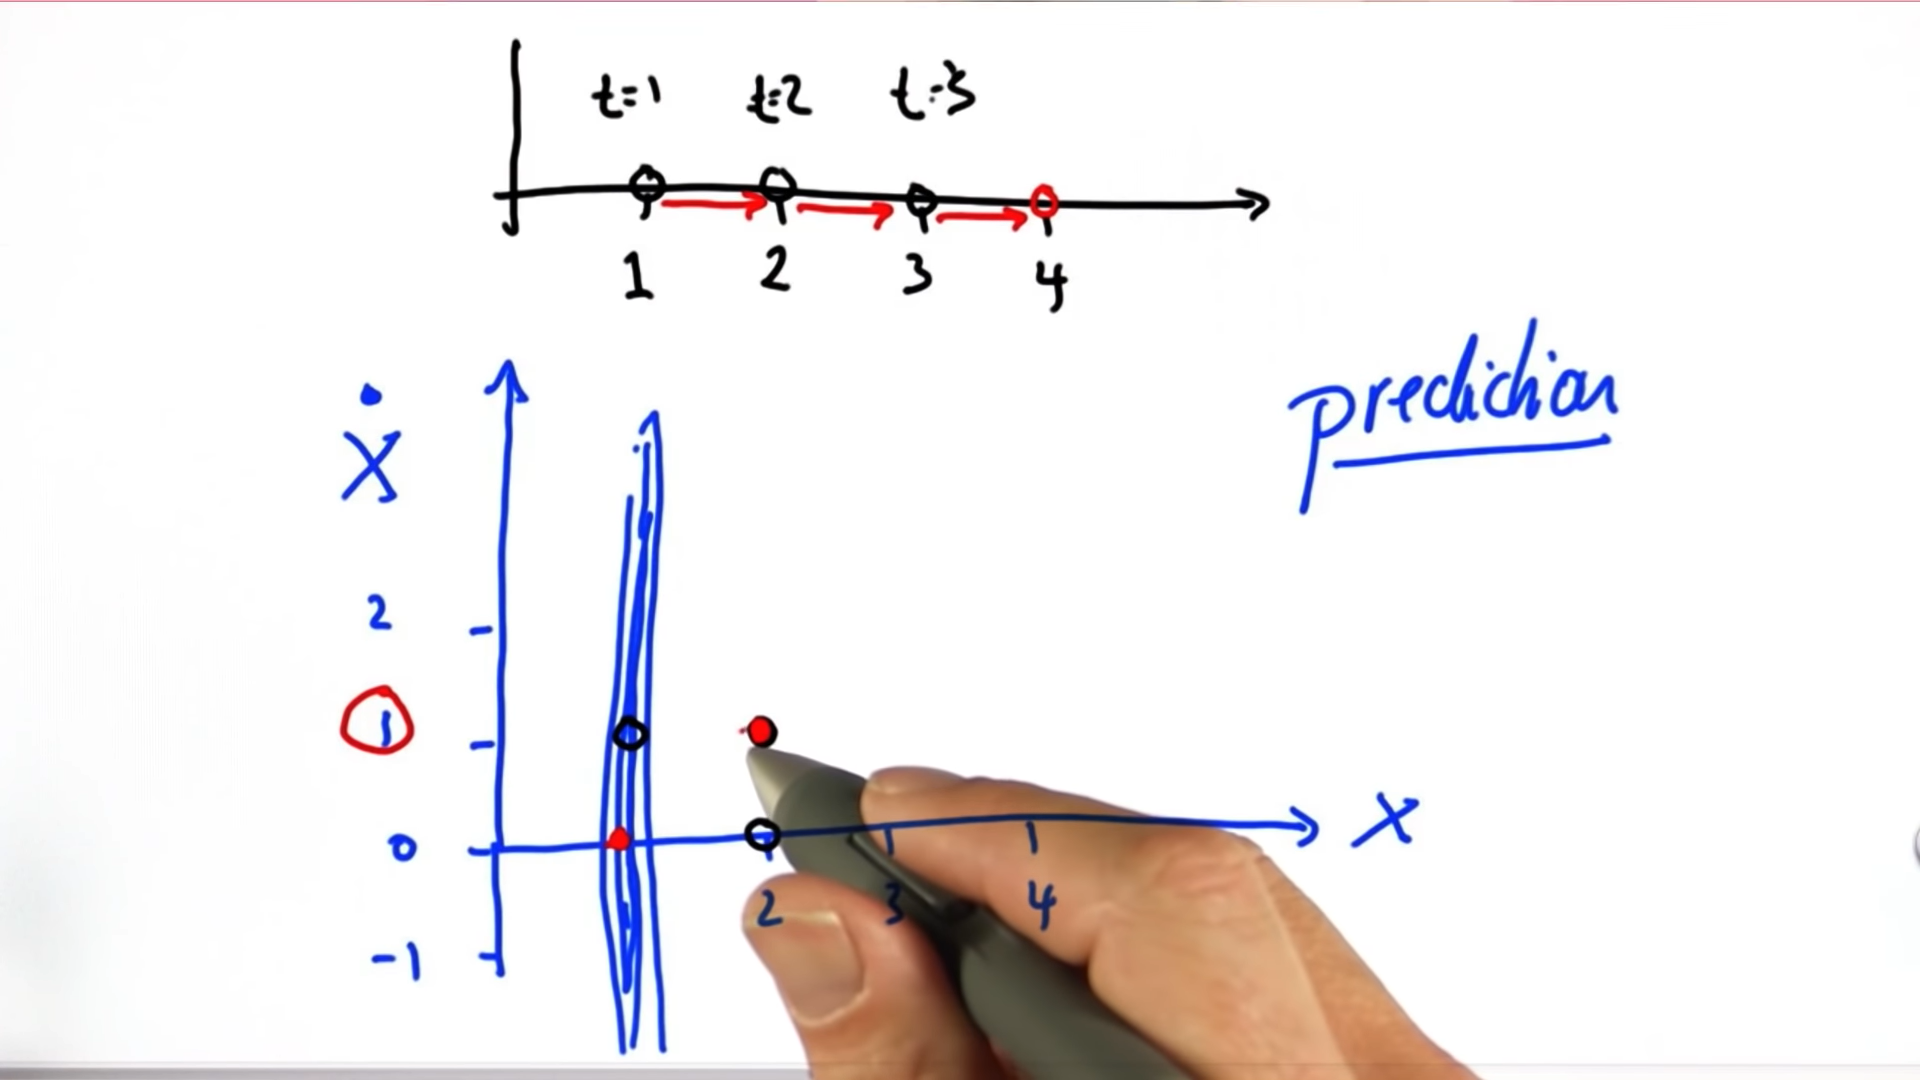 t=1 t=2 t=3
1 2 3 4
prediction
Ẋ
2
1
0
-1
2 3 4
X